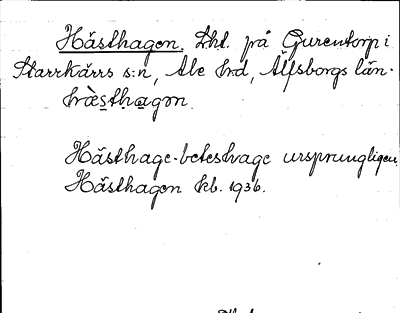 Hästhagen. Lht. på Gurentorp i
Starrkärrs s:n, Ale hd, Älfsborgs län.
hæ̀sthagǝn
Hästhage-beteshage ursprungligen.
Hästhagen kb. 1936.